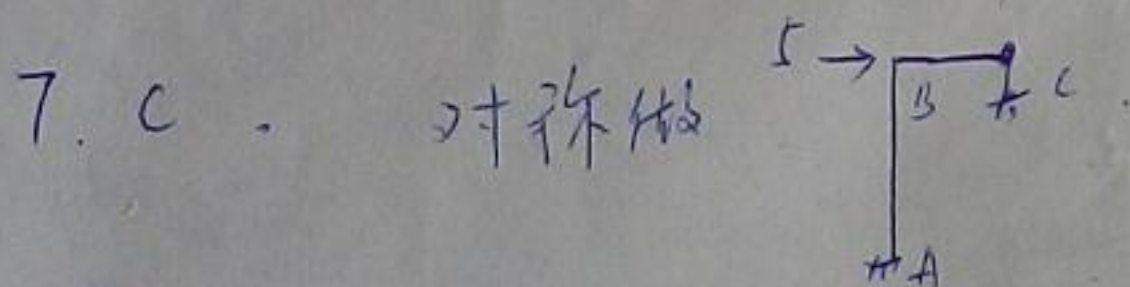 7. C. 对称做
5 → B C
A